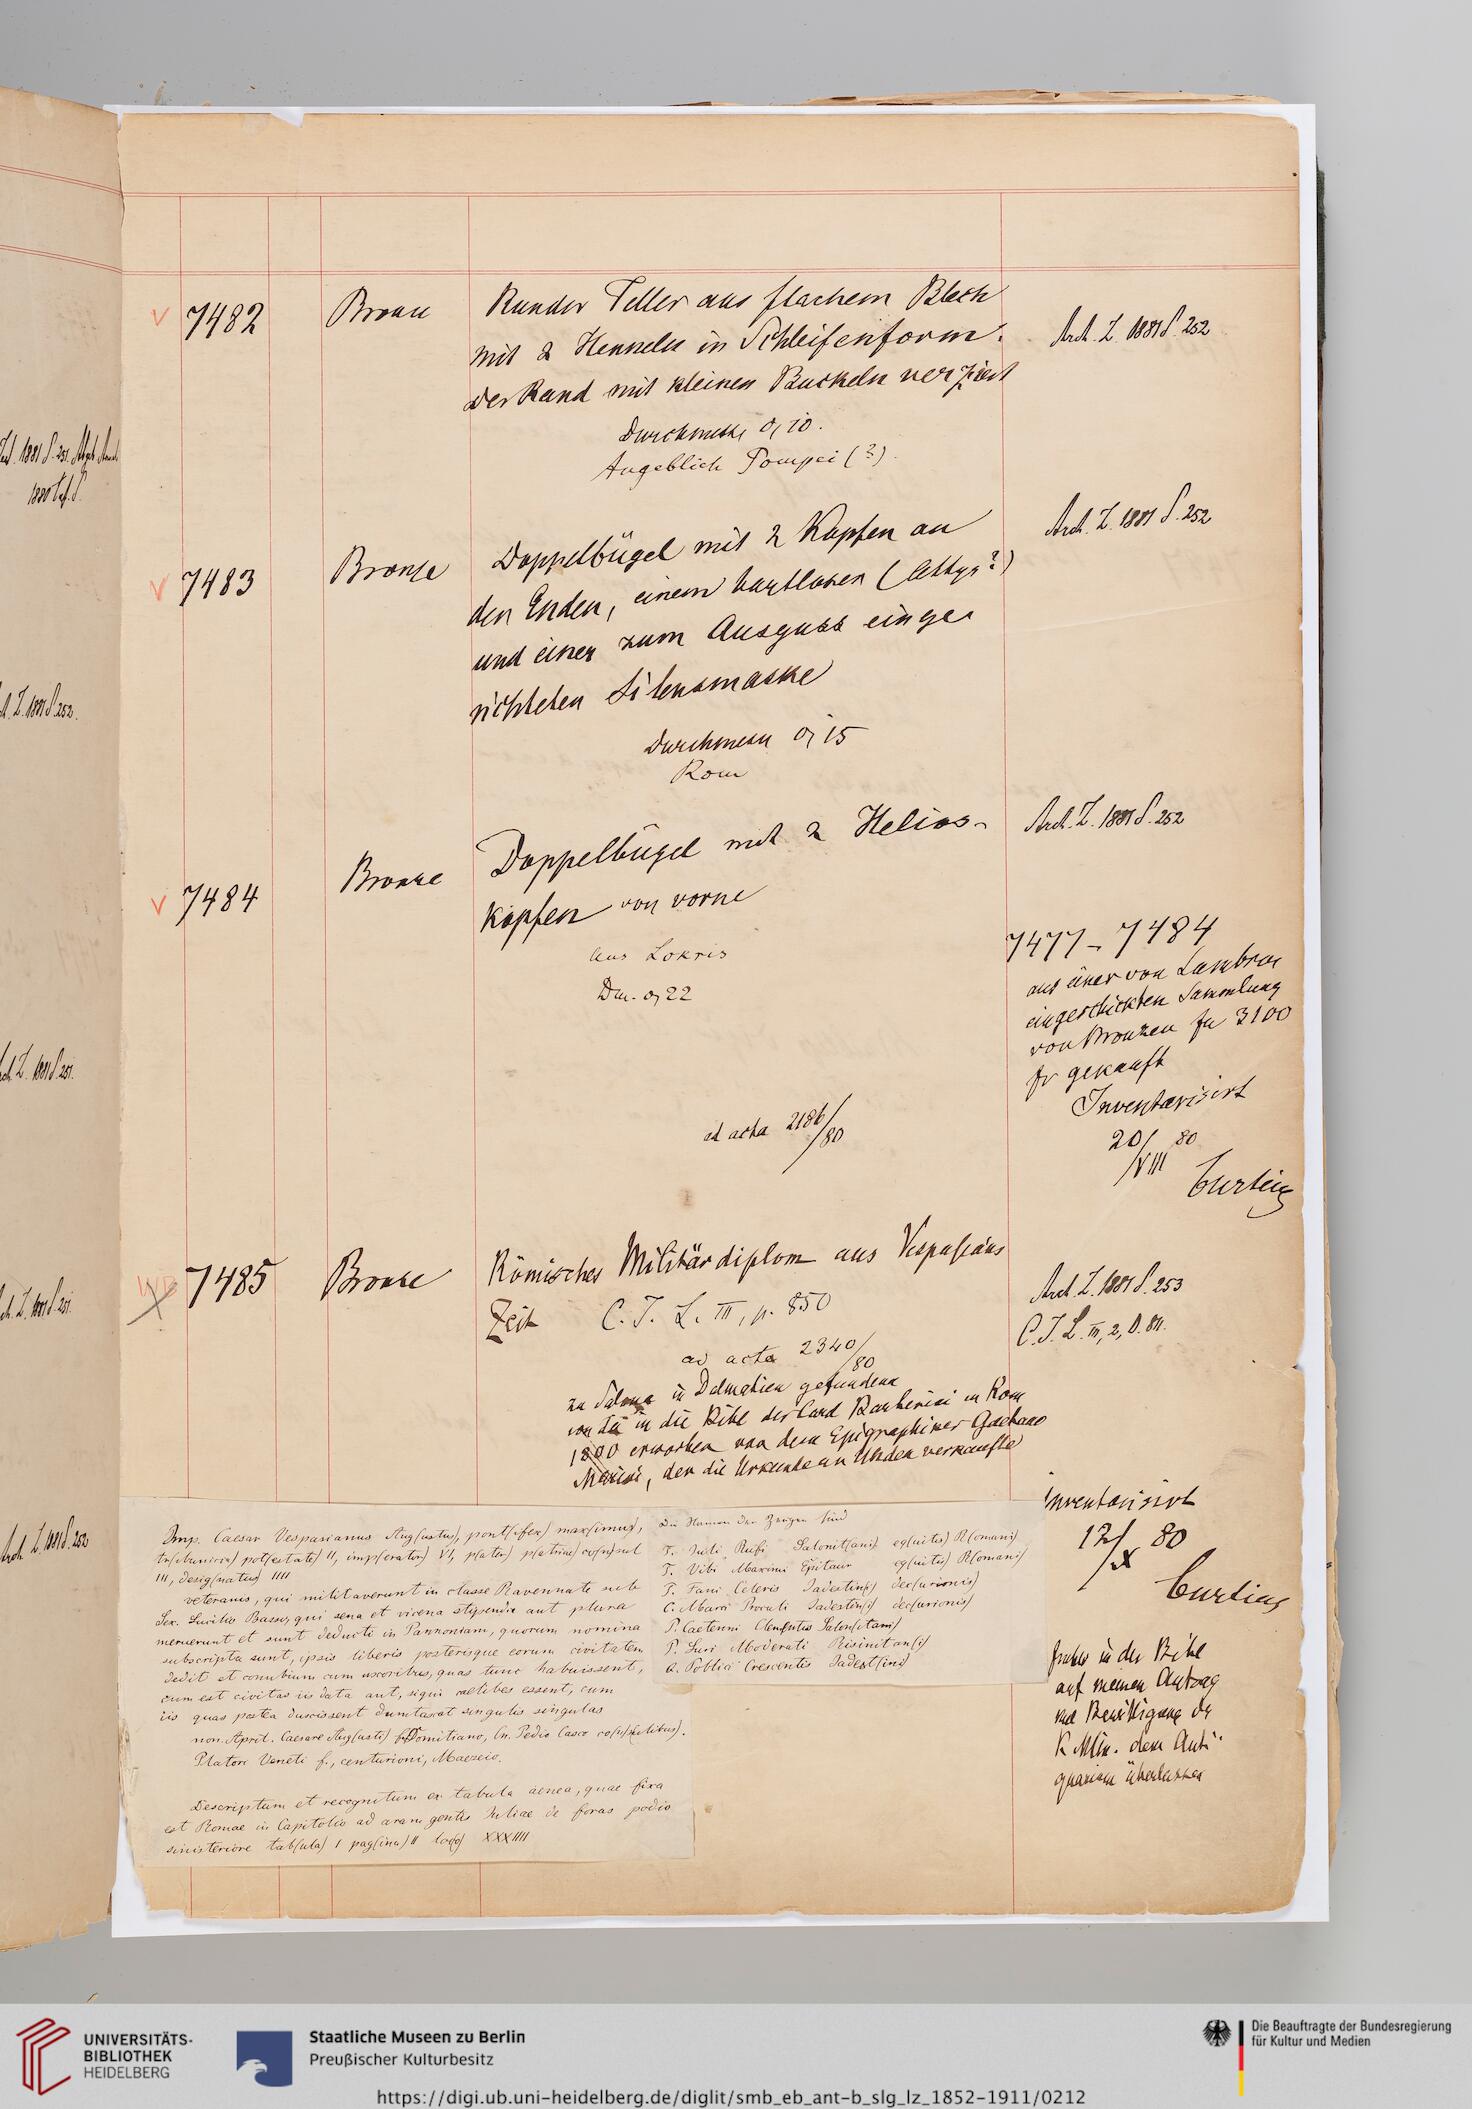 7482
Bronze
Runder Teller aus flachem Blech
mit 2 Henkeln in Schleifenform.
der Rand mit kleinen Buckeln verziert
Durchmess. 0,10.
Angeblich Pompei (?)
Arch. Z. 1881 S. 252
7483
Bronze
Doppelbügel mit 2 Köpfen an
den Enden, einem bartlosen (Attys?)
und einer zum Ausguss einge-
richteten Silensmaske
Durchmess 0,15
Rom
Arch. Z. 1881 S. 252
7484
Bronze
Doppelbügel mit 2 Helios-
köpfen von vorne
aus Lokris
Dm. 0,22
Arch. Z. 1881 S. 252
7477-7484
aus einer von Lambros
eingeschickten Sammlung
von Bronzen für 3100
fr gekauft
Inventarisirt
20/VIII 80
Curtius
ad acta 2186/80
7485
Bronze
Römisches Militärdiplom aus Vespasians
Zeit C. I. L. III, p. 850
ad acta 2340/80
zu Salona in Dalmatien gefunden
von da in die Bibl des Card Barberini in Rom
1800 erworben von dem Epigraphiker Gaetano
Marini, der die Urkunde an Uhden verkaufte
Arch. Z. 1881 S. 253
C. I. L. III, 2,
Inventarisirt
12/X 80
Curtius
früher in der Bibl
auf meinen Antrag
und Bewilligung des
K Min. dem Anti-
quarium überlassen
Imp. Caesar Vespasianus Aug(ustus), pont(ifex) max(imus),
tr(ibunicia) pot(estate) II, imp(erator) VI, p(ater) p(atriae) co(n)sul
III, desig(natus) IIII
veteranis, qui militaverunt in classe Ravennate sub
Sex. Lucilio Basso, qui sena et vicena stipendia aut plura
meruerunt et sunt deducti in Pannoniam, quorum nomina
subscripta sunt, ipsis liberis posterisque eorum civitatem
dedit et conubium cum uxoribus, quas tunc habuissent,
cum est civitas iis data aut, siqui caelibes essent, cum
iis quas postea duxissent dumtaxat singulis singulas
non. April. Caesare Aug(usti) f. Domitiano, Cn. Pedio Casco co(n)s(ulibus).
Platori Veneti f., centurioni, Maezeio.
Descriptum et recognitum ex tabula aenea, quae fixa
est Romae in Capitolio ad aram gentis Iuliae de foras podio
sinisteriore tab(ula) I pag(ina) II loc(o) XXXIIII
Die Namen der Zeugen sind
T. Iuli Rufi Salonit(ani) eq(uitis) R(omani)
T. Vibi Maximi Epitaur eq(uitis) R(omani)
T. Fani Celeris Iadestin(i) dec(urionis)
C. Marci Proculi Iadestin(i) dec(urionis)
P. Caetenni Clementis Salon(itani)
P. Luri Moderati Risinitan(i)
Q. Poblici Crescentis Iadest(ini)
Arch. Z. 1881 S. 252.
Arch. Z. 1881 S. 251.
Arch. Z. 1881 S. 251.
Arch. Z. 1881 S. 252
UNIVERSITÄTS-
BIBLIOTHEK
HEIDELBERG
Staatliche Museen zu Berlin
Preußischer Kulturbesitz
Die Beauftragte der Bundesregierung
für Kultur und Medien
https://digi.ub.uni-heidelberg.de/diglit/smb_eb_ant-b_slg_lz_1852-1911/0212